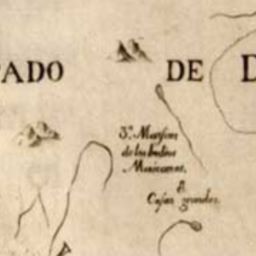 PADO DE D
3ª. Mansion
de los Indios
Mexicanos.
ô
Casas grandes.